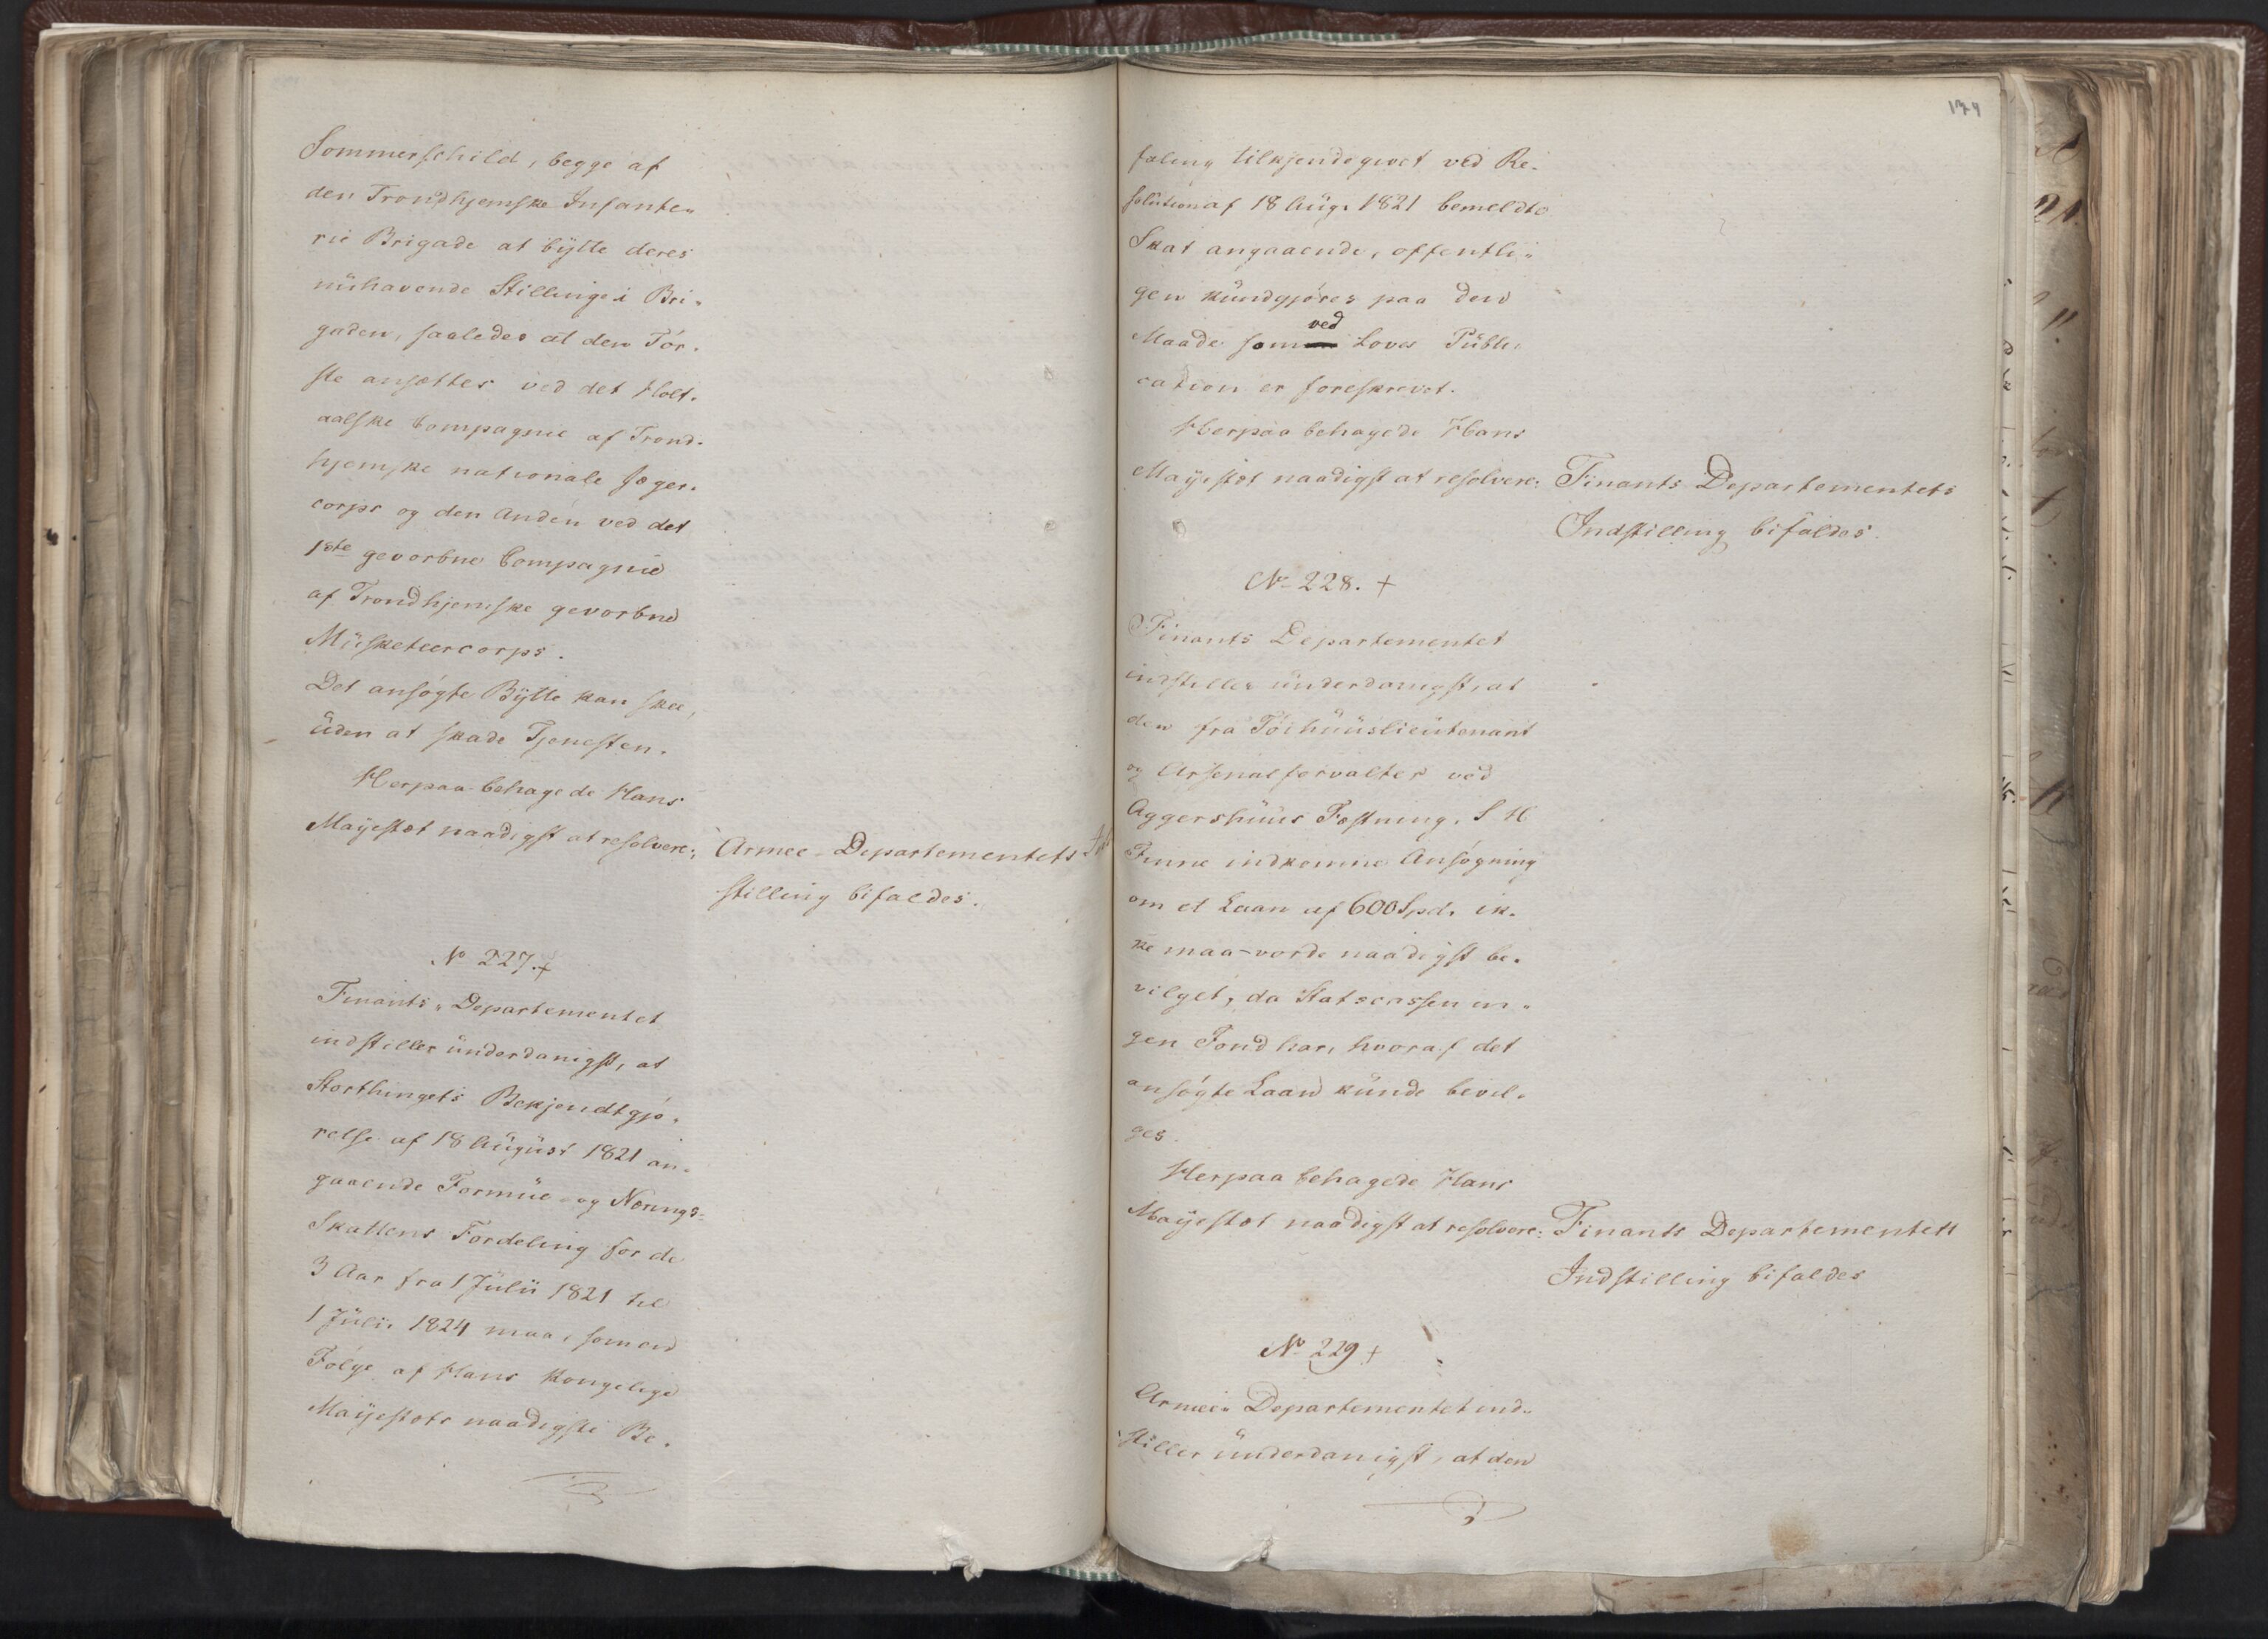 Sommerschild, begge af
den Trondhjemske Infante„
rie Brigade at bytte deres
nuhavende Stillinge i Bri„
gaden, saaledes at den Før„
ste ansættes ved det Holt„
aalske Compagnie af Trond„
hjemske nationale Jæger„
corps og den Anden ved det
1ste gevorbne Compagnie
af Trondhjemske gevorbne
Musketeercorps.
Det ansøgte Bytte kan skee,
uden at skade Tjenesten.
Herpaa behagede Hans
Majestæt naadigst at resolvere:
Armee-Departementets Ind
stilling bifaldes.
No 227. +
Finants„Departementet
indstiller underdanigst, at
Storthingets Bekjendtgjø„
relse af 18 August 1821 an„
gaaende Formue- og Nærings-
Skattens Fordeling for de
3 Aar fra 1 Julii 1821 til
1 Juli. 1824 maa, som en
Følge af Hans Kongelige
Majestæts naadigste Be„
174
faling tilkjendegivet ved Re„
solution af 18 Aug. 1821 bemeldte
Skat angaaende, offentli„
gen kundgjøres paa den
Maade som ved Loves Publi„
cation er foreskrevet.
Herpaa behagede Hans
Majestæt naadigst at resolvere:
Finants Departementets
Indstilling bifaldes.
No 228. +
Finants Departementet
indstiller underdanigst, at
den fra Töihuuslieutenant
og Arsenalforvalter ved
Aggershuus Fæstning, S H
Finne indkomne Ansøgning
om et Laan af 600 Spd. ik„
ke maa vorde naadigst be„
vilget, da Statscassen in„
gen Fond har, hvoraf det
ansøgte Laan kunde bevil„
ges.
Herpaa behagede Hans
Majestæt naadigst at resolvere:
Finants Departementets
Indstilling bifaldes
No 229 +
Armee„Departementet ind„
stiller underdanigst, at den